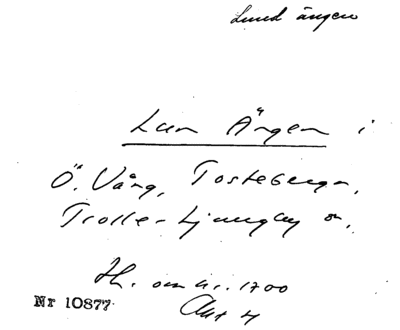 Lund ängen
Lun Ängen i
Ö. Vång, Tosteberga,
Trolle-Ljungby sn.
H. om år. 1700
Nr 10877
Akt 4